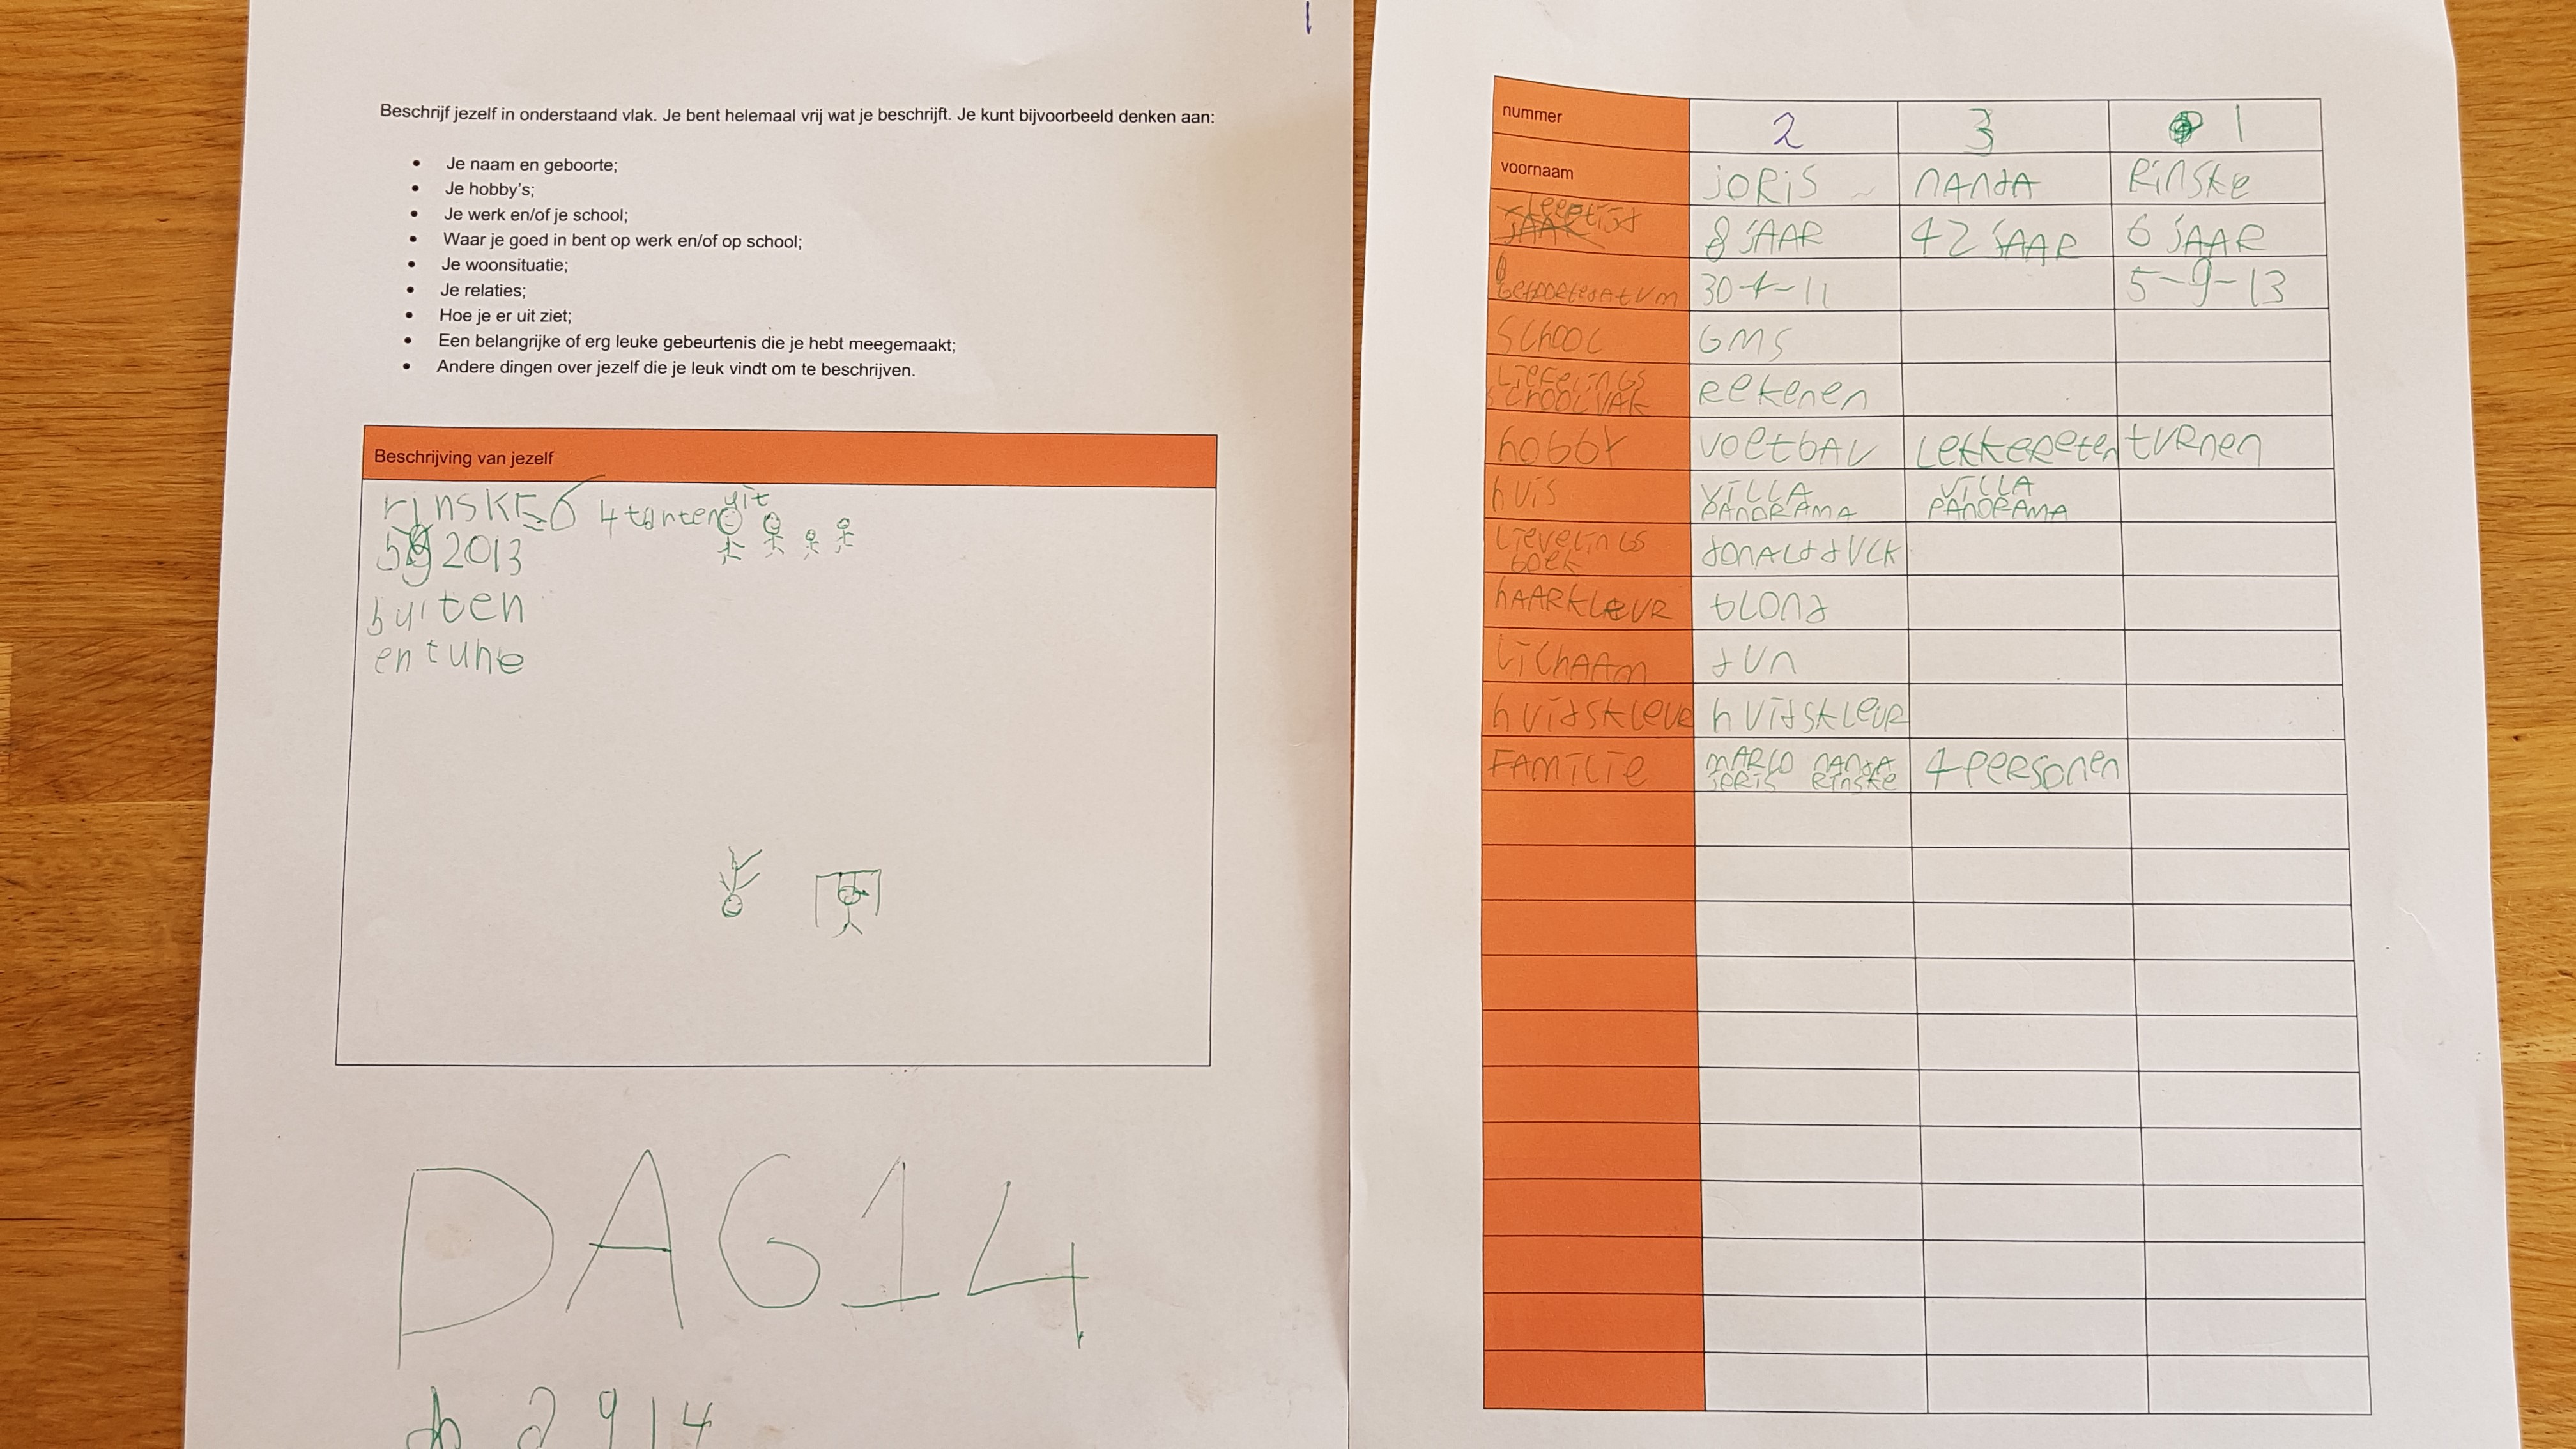 Beschrijf jezelf in onderstaand vlak. Je bent helemaal vrij wat je beschrijft. Je kunt bijvoorbeeld denken aan:
• Je naam en geboorte;
• Je hobby's;
• Je werk en/of je school;
• Waar je goed in bent op werk en/of op school;
• Je woonsituatie;
• Je relaties;
• Hoe je er uit ziet;
• Een belangrijke of erg leuke gebeurtenis die je hebt meegemaakt;
• Andere dingen over jezelf die je leuk vindt om te beschrijven.
Beschrijving van jezelf
rinskE 6 4 tanten uit
5 9 2013
buiten
en tuhe
DAG 14
nummer 2 3 1
voornaam JORiS NANdA RiNSKe
leeftijd 8 JAAR 42 JAAR 6 JAAR
geboortedAtUm 30-4-11 5-9-13
SChOOL GMS
LiefeLiNGS SChOOLVAK Rekenen
hobbY VOetbAL Lekkereten tURnen
hUiS ViLLA PANORAMA ViLLA PANORAMA
LieveLiNGS boek dONALd dUCK
hAARKLeUR bLONd
LiChAAm dUn
hUidSkLeUR hUidSkLeUR
FAmiLie mARCO NANdA JORiS RiNSke 4 PeRSOnen